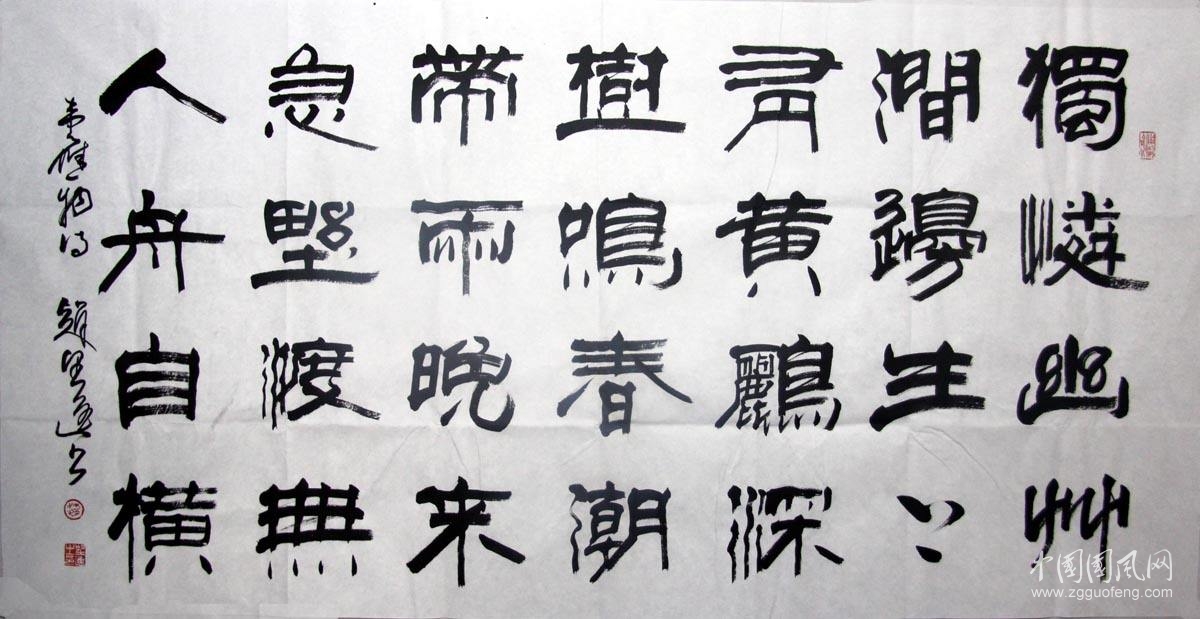 獨憐幽艸
澗邊生上
有黃鸝深
樹鳴春潮
帶雨晚來
急野渡無
人舟自橫
韋應物詩 趙望進書
中国國风网
www.zgguofeng.com